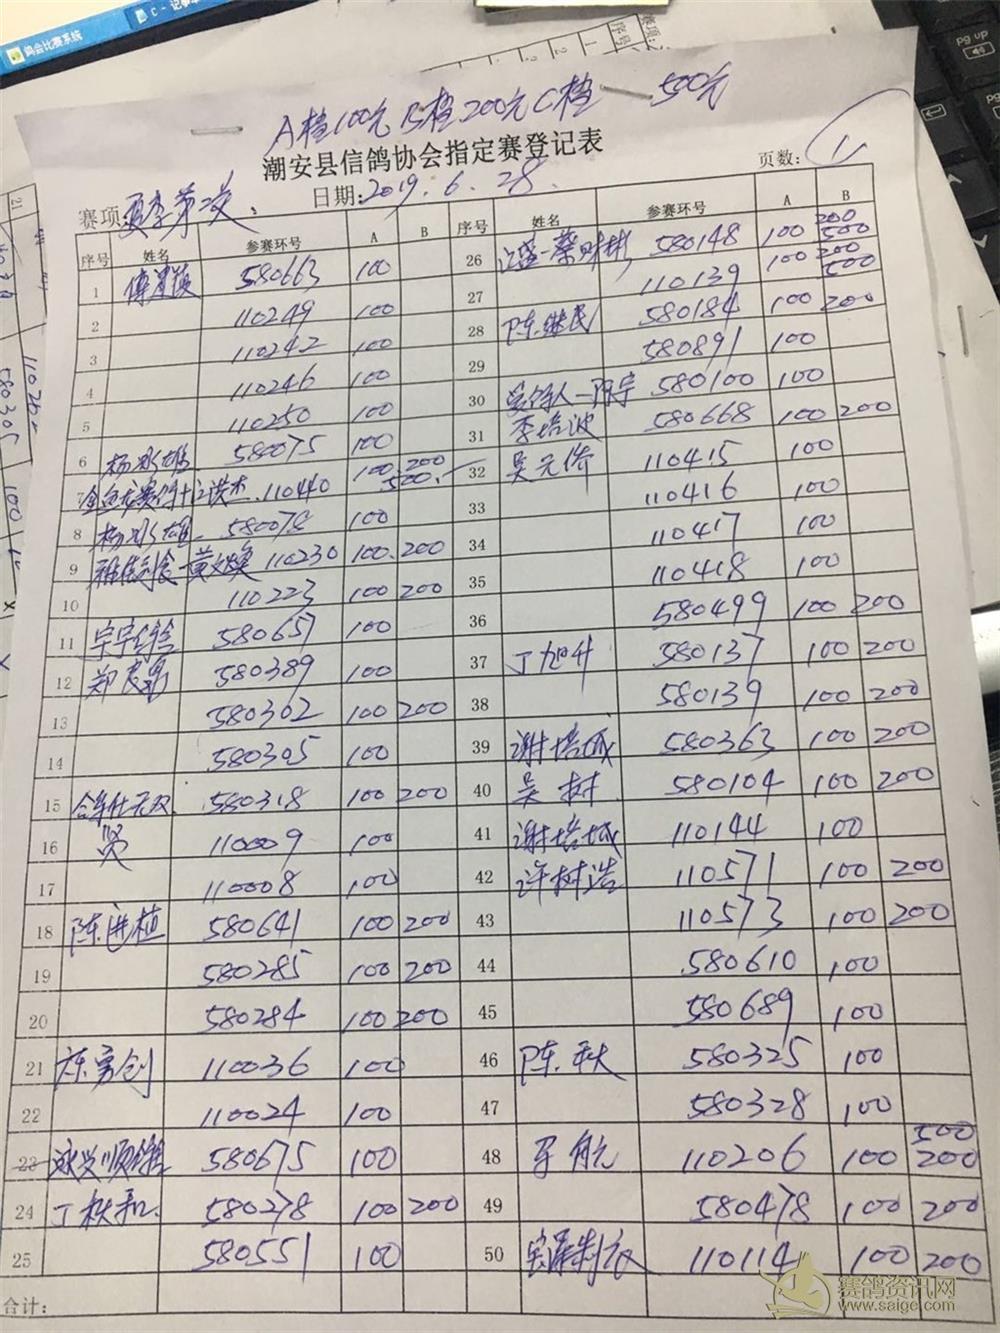 鸽会比赛系统
A档100元 B档200元 C档 500元
潮安县信鸽协会指定赛登记表
赛项: 夏季第二关
日期: 2019.6.28.
页数: 1
序号 姓名 参赛环号 A B
1 580663 100
2 110249 100
3 110242 100
4 110246 100
5 110250 100
6 杨冰雄 580075 100
7 110440 100 200 500
8 杨冰雄 580078 100
9 110230 100 200
10 110223 100 200
11 宇宇 580657 100
12 580389 100
13 580302 100 200
14 580305 100
15 580318 100 200
16 贤 110009 100
17 110008 100
18 陈进植 580641 100 200
19 580285 100 200
20 580284 100 200
21 陈勇创 110036 100
22 110024 100
23 永兴顺 580675 100
24 丁秋和 580278 100 200
25 580551 100
合计:
序号 姓名 参赛环号 A B
26 江盛-蔡财彬 580148 100 200 500
27 110139 100 200 500
28 陈继民 580184 100 200
29 580891 100
30 580100 100
31 李培波 580668 100 200
32 吴元侨 110415 100
33 110416 100
34 110417 100
35 110418 100
36 580499 100 200
37 丁旭升 580137 100 200
38 580139 100 200
39 谢培城 580363 100 200
40 吴树 580104 100 200
41 谢培城 110144 100
42 许树浩 110571 100 200
43 110573 100 200
44 580610 100
45 580689 100
46 陈秋 580325 100
47 580328 100
48 110206 100 500 200
49 580478 100 200
50 110114 100 200
赛鸽资讯网
www.saige.com